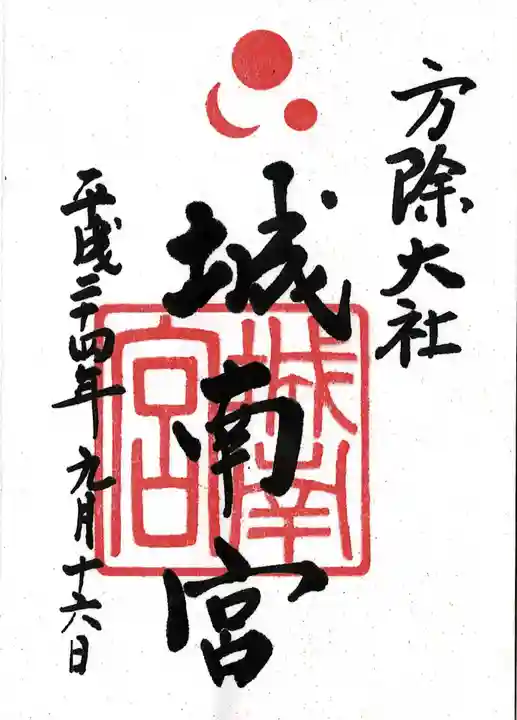 方除大社
城南宮
城南宮
平成二十四年九月十六日